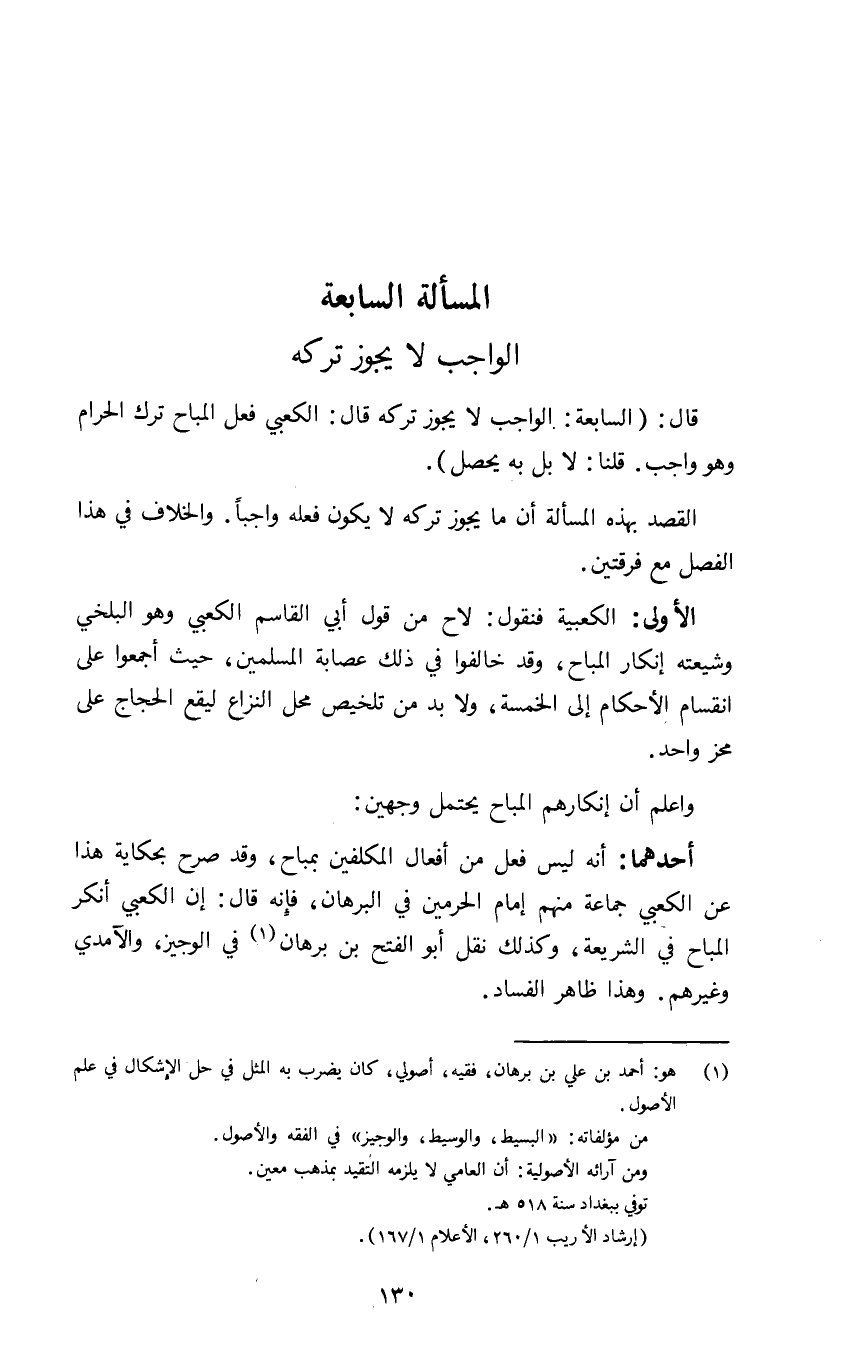 المسألة السابعة
الواجب لا يجوز تركه
قال: (السابعة: الواجب لا يجوز تركه قال: الكعبي فعل المباح ترك الحرام
وهو واجب. قلنا: لا بل به يحصل).
القصد بهذه المسألة أن ما يجوز تركه لا يكون فعله واجباً. والخلاف في هذا
الفصل مع فرقتين.
الأولى: الكعبية فنقول: لاح من قول أبي القاسم الكعبي وهو البلخي
وشيعته إنكار المباح، وقد خالفوا في ذلك عصابة المسلمين، حيث أجمعوا على
انقسام الأحكام إلى الخمسة، ولا بد من تلخيص محل النزاع ليقع الحجاج على
محز واحد.
واعلم أن إنكارهم المباح يحتمل وجهين:
أحدهما: أنه ليس فعل من أفعال المكلفين بمباح، وقد صرح بحكاية هذا
عن الكعبي جماعة منهم إمام الحرمين في البرهان، فإنه قال: إن الكعبي أنكر
المباح في الشريعة، وكذلك نقل أبو الفتح بن برهان(١) في الوجيز، والآمدي
وغيرهم. وهذا ظاهر الفساد.
(١) هو: أحمد بن علي بن برهان، فقيه، أصولي، كان يضرب به المثل في حل الإشكال في علم
الأصول.
من مؤلفاته: «البسيط، والوسيط، والوجيز» في الفقه والأصول.
ومن آرائه الأصولية: أن العامي لا يلزمه التقيد بمذهب معين.
توفي ببغداد سنة ٥١٨ هـ.
(إرشاد الأريب ٢٦٠/١، الأعلام ١٦٧/١).
١٣٠